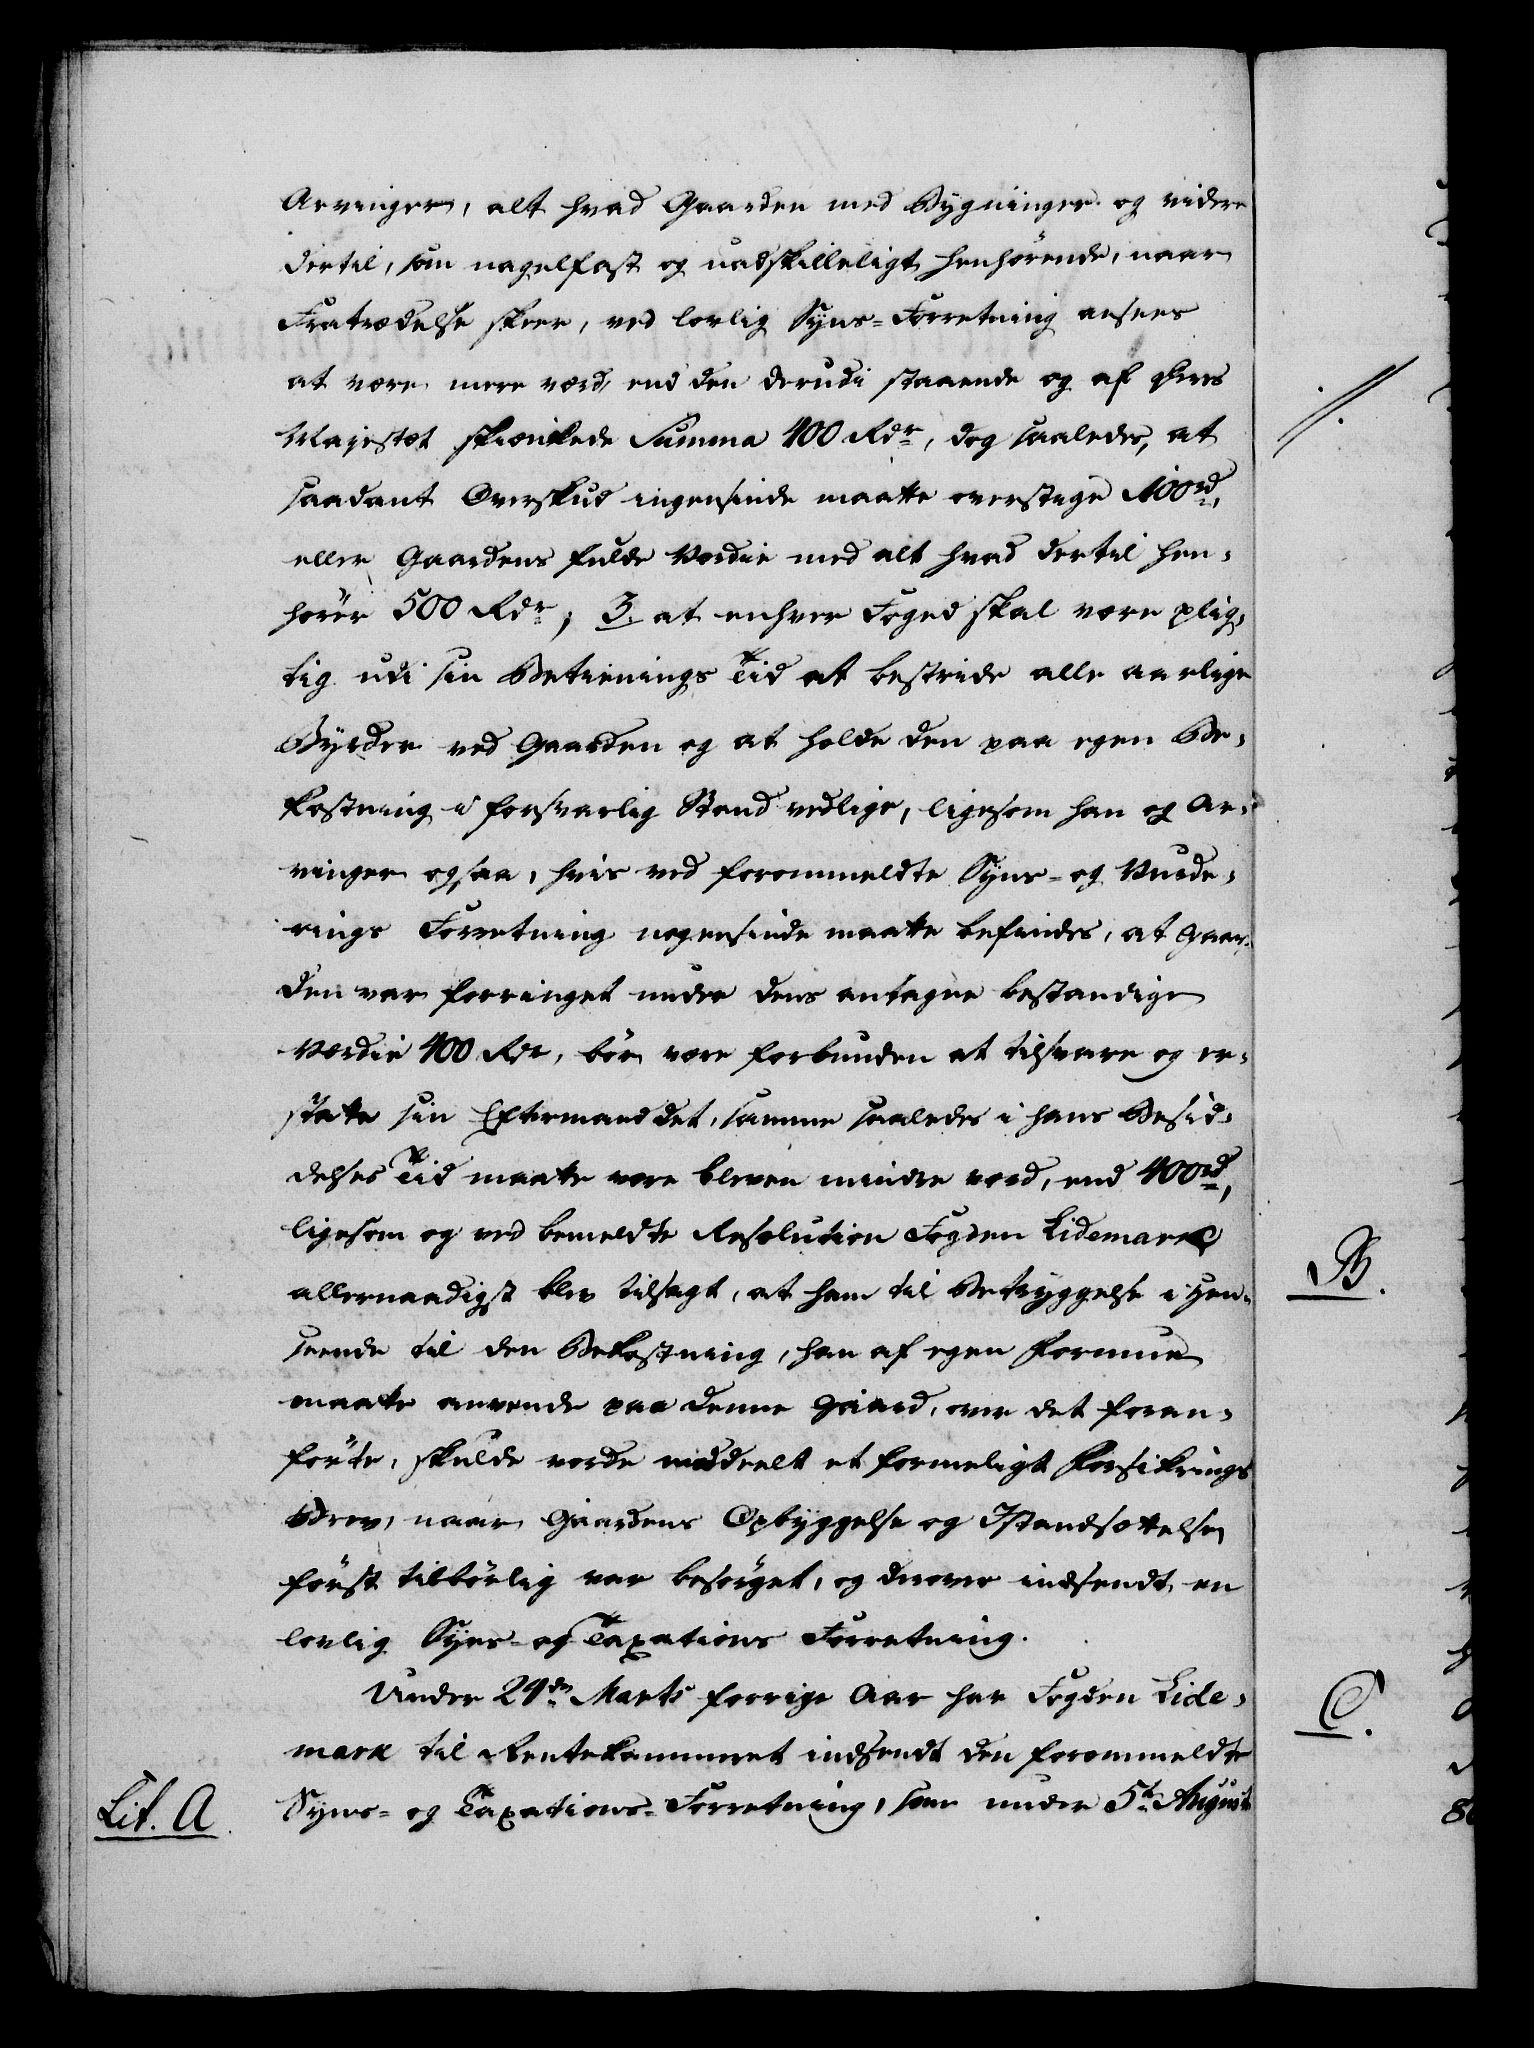 Arvinger, alt hvad Gaarden med Bygninger og videre
dertil, som nagelfast og uadskilleligt henhørende, naar
Fratrædelse skeer, ved lovlig Syns-Forretning ansees
at være mere værd, end den derudi staaende og af Deres
Majestæt skienkede Summa 400 Rdr, dog saaledes, at
saadant Overskud ingensinde maatte overstige 100rd,
eller Gaardens fulde Værdie med alt hvad dertil hen-
hører 500 Rdr; 3. at enhver Foged skal være plig-
tig udi sin Betienings Tid at bestride alle aarlige
Byrder ved Gaarden og at holde den paa egen Be-
kostning i forsvarlig Stand vedlige, ligesom han og Ar-
vinger ogsaa, hvis ved forommeldte Syns- og Vurde-
rings Forretning nogensinde maatte befindes, at Gaar-
den var forringet under dens antagne bestandige
Værdie 400 Rdr, bør være forbunden at tilsvare og er-
statte sin Eftermand det, samme saaledes i hans Besid-
delses Tid maatte være bleven mindre værd, end 400rd,
ligesom og ved bemeldte Resolution Fogden Lidemark
allernaadigst blev tilsagt, at ham til Betryggelse i Hen-
seende til den Bekostning, han af egen Formue
maatte anvende paa denne Gaard, over det foran-
førte, skulde vorde meddeelt et formeligt Forsikrings
Brev, naar Gaardens Opbyggelse og Istandsættelse
først tilbørlig var besørget, og derover indsendt en
lovlig Syns- og Taxations Forretning.
Under 24de Marts forrige Aar har Fogden Lide-
mark til Rentekammeret indsendt den forommeldte
Lit. A. Syns- og Taxations-Forretning, som under 5te August
//.
B.
C.